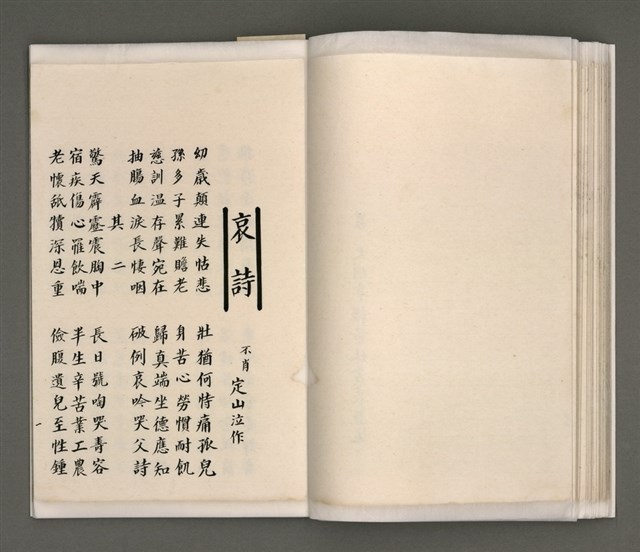 哀詩
不肖 定山泣作
幼歲顛連失怙悲 壯猶何恃痛孤兒
孫多子累難贍老 身苦心勞慣耐飢
慈訓溫存聲宛在 歸真端坐德應知
抽腸血淚長悽咽 破例哀吟哭父詩
其二
驚天霹靂震胸中 長日號啕哭壽容
宿疾傷心罹飲喘 半生辛苦業工農
老懷舐犢深恩重 儉腹遺兒至性鍾